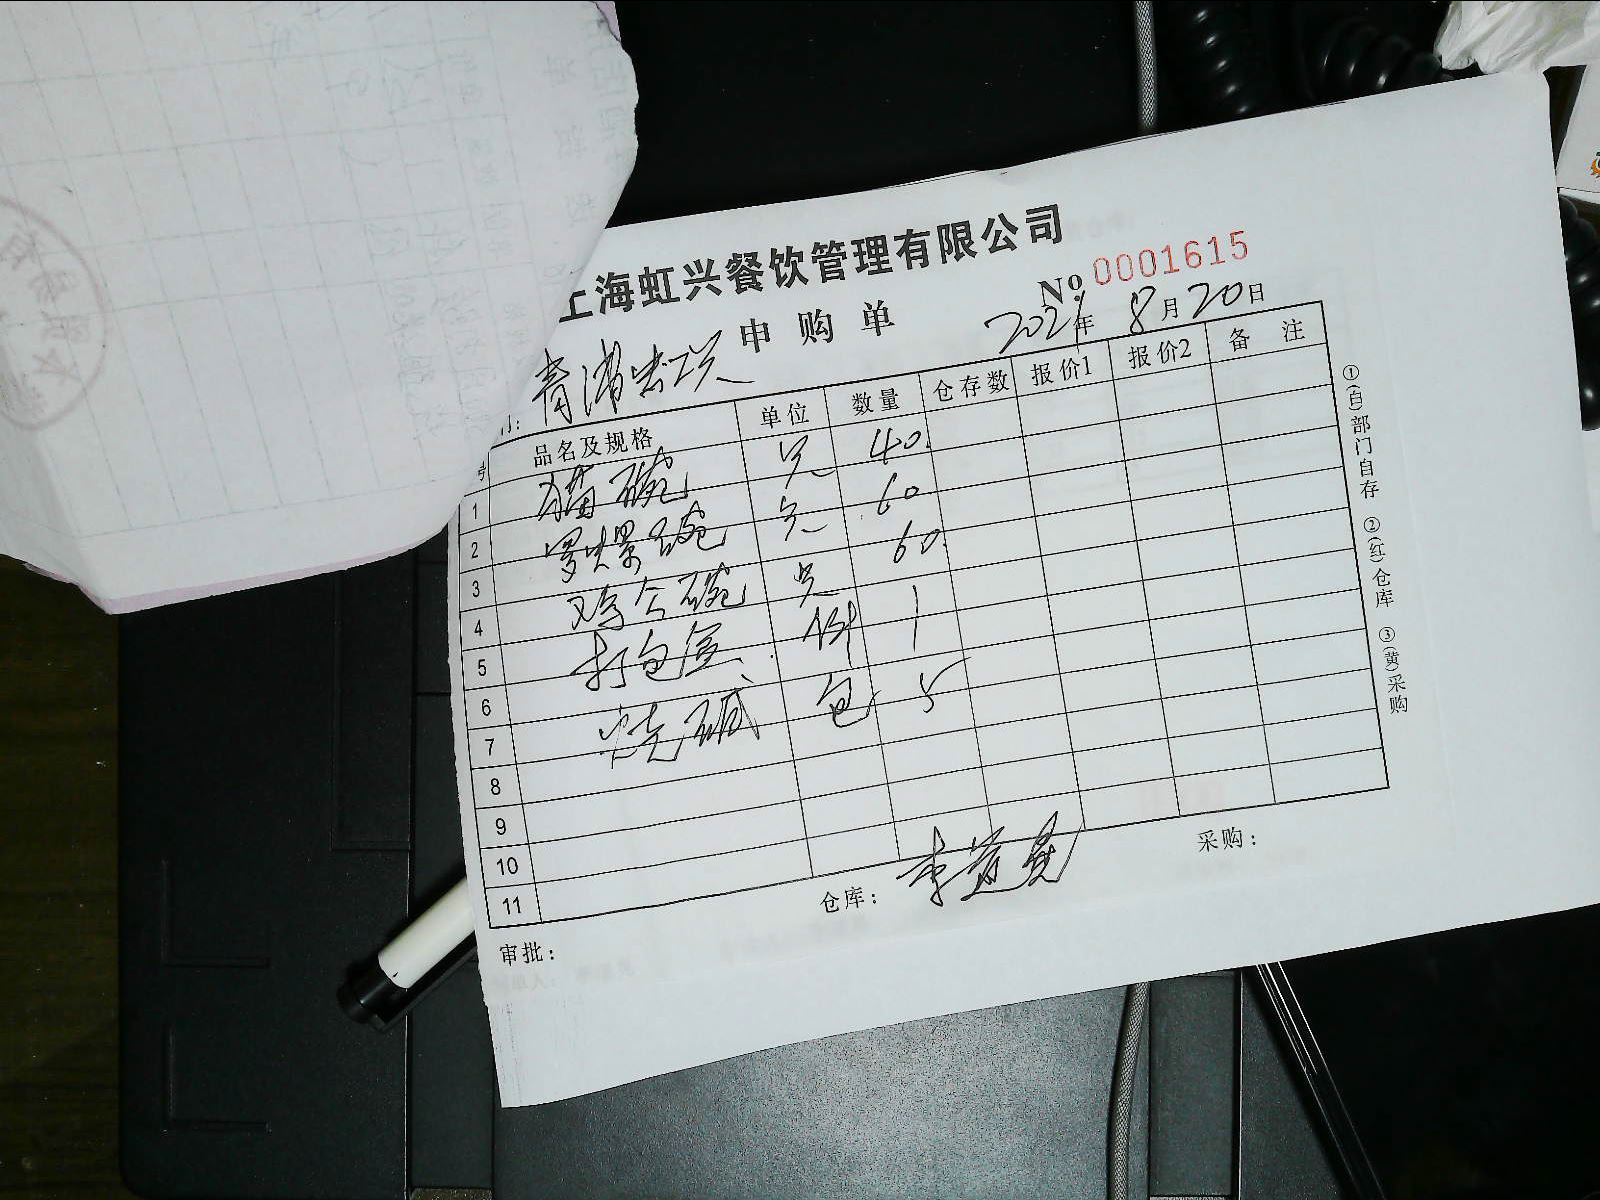 上海虹兴餐饮管理有限公司
No 0001615
申购单
2021年 8月 20日
品名及规格 单位 数量 仓存数 报价1 报价2 备注
1 猫碗 只 40
2 碗 只 60
3 鸡公碗 只 60
4 打包盒 件 1
5
6 烧碱 包 5
7
8
9
10
11
审批： 仓库： 李 采购：
①(白)部门自存 ②(红)仓库 ③(黄)采购